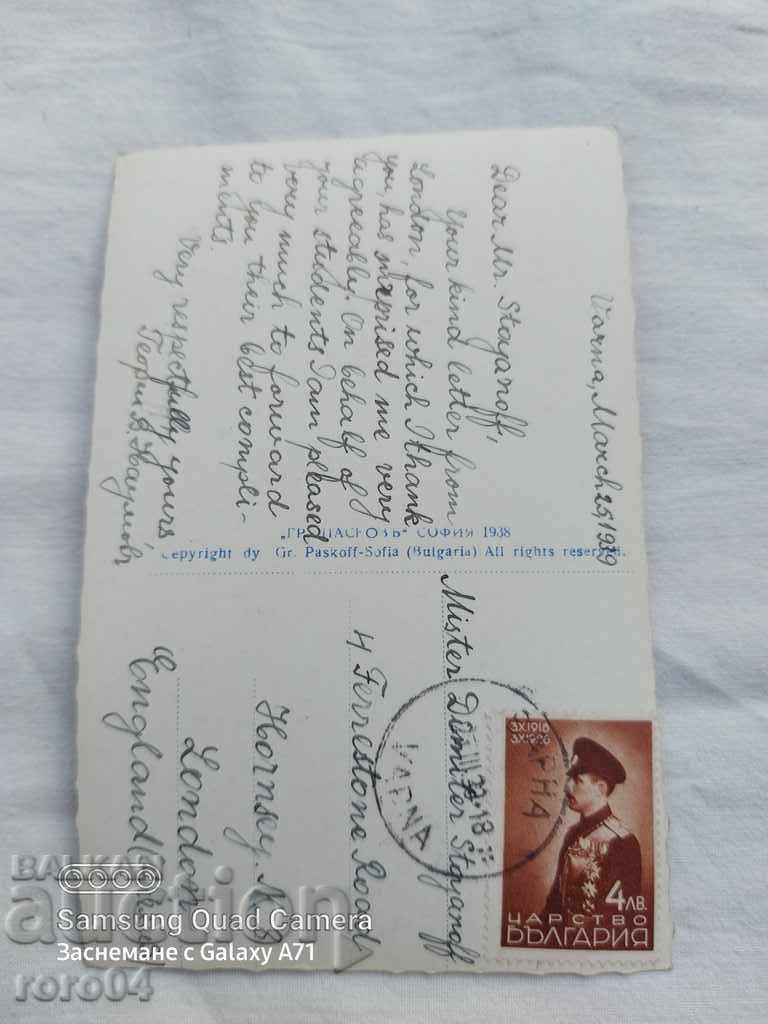 Varna, March 25, 1939
Dear Mr. Stoyanoff,
Your kind letter from
London, for which I thank
you, has surprised me very
agreeably. On behalf of
your students I am pleased
very much to forward
to you their best compli-
ments.
Very respectfully yours
Георги В. Наумовъ
СОФИЯ 1938
Copyright dy Gr. Paskoff-Sofia (Bulgaria) All rights
Mister Dimiter Stoyanoff
4 Ferrestone Road
Hornsey, N.
London
England
ВАРНА
VARNA
3X1918
4 ЛВ.
ЦАРСТВО
БЪЛГАРИЯ
BALKAN
auction
Samsung Quad Camera
Заснемане с Galaxy A71
roro04